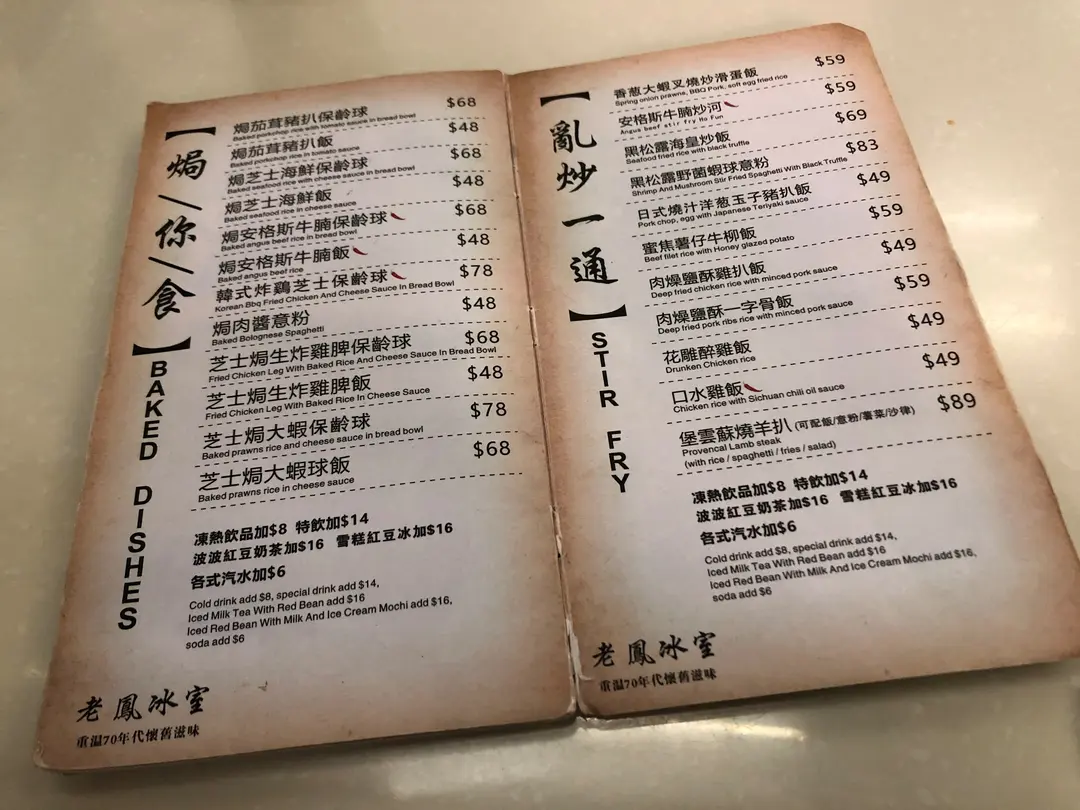 【焗/你/食】
BAKED DISHES
焗茄茸豬扒保齡球 $68
Baked porkchop rice with tomato sauce in bread bowl
焗茄茸豬扒飯 $48
Baked porkchop rice in tomato sauce
焗芝士海鮮保齡球 $68
Baked seafood rice with cheese sauce in bread bowl
焗芝士海鮮飯 $48
Baked seafood rice in cheese sauce
焗安格斯牛腩保齡球 $68
Baked angus beef rice in bread bowl
焗安格斯牛腩飯 $48
Baked angus beef rice
韓式炸鷄芝士保齡球 $78
Korean Bbq Fried Chicken And Cheese Sauce In Bread Bowl
焗肉醬意粉 $48
Baked Bolognese Spaghetti
芝士焗生炸雞脾保齡球 $68
Fried Chicken Leg With Baked Rice And Cheese Sauce In Bread Bowl
芝士焗生炸雞脾飯 $48
Fried Chicken Leg With Baked Rice In Cheese Sauce
芝士焗大蝦保齡球 $78
Baked prawns rice and cheese sauce in bread bowl
芝士焗大蝦球飯 $68
Baked prawns rice in cheese sauce
凍熱飲品加$8 特飲加$14
波波紅豆奶茶加$16 雪糕紅豆冰加$16
各式汽水加$6
Cold drink add $8, special drink add $14,
Iced Milk Tea With Red Bean add $16
Iced Red Bean With Milk And Ice Cream Mochi add $16,
soda add $6
老鳳冰室
重温70年代懷舊滋味
【亂炒一通】
STIR FRY
香葱大蝦叉燒炒滑蛋飯 $59
Spring onion prawns, BBQ Pork, soft egg fried rice
安格斯牛腩炒河 $59
Angus beef stir fry Ho Fun
黑松露海皇炒飯 $69
Seafood fried rice with black truffle
黑松露野菌蝦球意粉 $83
Shrimp And Mushroom Stir Fried Spaghetti With Black Truffle
日式燒汁洋葱玉子豬扒飯 $49
Pork chop, egg with Japanese Teriyaki sauce
蜜焦薯仔牛柳飯 $59
Beef filet rice with Honey glazed potato
肉燥鹽酥雞扒飯 $49
Deep fried chicken rice with minced pork sauce
肉燥鹽酥一字骨飯 $59
Deep fried pork ribs rice with minced pork sauce
花雕醉雞飯 $49
Drunken Chicken rice
口水雞飯 $49
Chicken rice with Sichuan chili oil sauce
堡雲蘇燒羊扒 (可配飯/意粉/薯菜/沙律) $89
Provencal Lamb steak
(with rice / spaghetti / fries / salad)
凍熱飲品加$8 特飲加$14
波波紅豆奶茶加$16 雪糕紅豆冰加$16
各式汽水加$6
Cold drink add $8, special drink add $14,
Iced Milk Tea With Red Bean add $16
Iced Red Bean With Milk And Ice Cream Mochi add $16,
soda add $6
老鳳冰室
重温70年代懷舊滋味